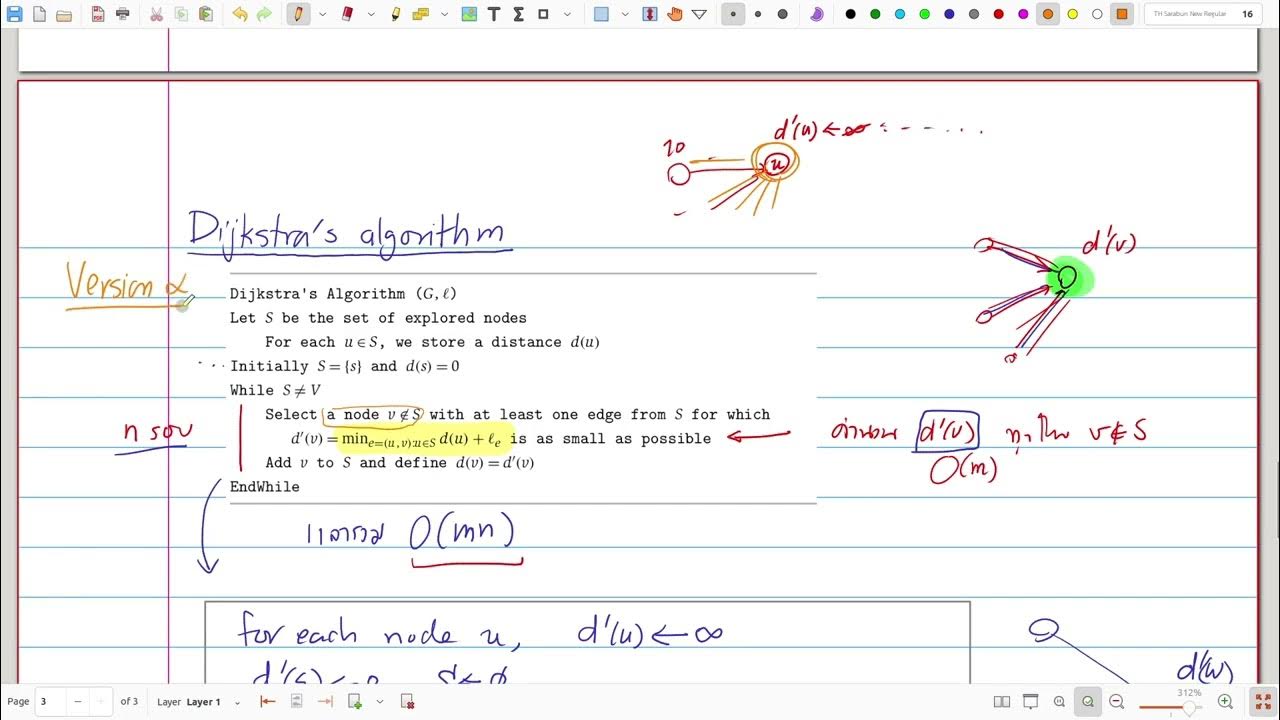 TH Sarabun New Regular 16
d'(u) ← ∞
20
u
Dijkstra's algorithm
d'(v)
Version α
Dijkstra's Algorithm (G, ℓ)
Let S be the set of explored nodes
For each u ∈ S, we store a distance d(u)
Initially S = {s} and d(s) = 0
While S ≠ V
Select a node v ∉ S with at least one edge from S for which
d'(v) = min_{e=(u,v):u∈S} d(u) + ℓ_e is as small as possible
Add v to S and define d(v) = d'(v)
EndWhile
n รอบ
คำนวณ d'(v) ทุกโหนด v ∉ S
O(m)
เวลารวม O(mn)
for each node u, d'(u) ← ∞
d'(s) ← 0 S ← ∅
d'(w)
Page 3 of 3 Layer Layer 1
312%